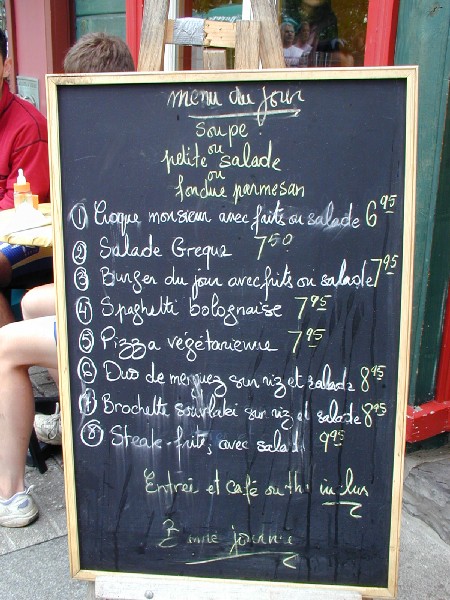 menu du jour
soupe
ou
petite salade
ou
fondue parmesan
① Croque monsieur avec frits ou salade 6 95
② Salade Greque 7 50
③ Burger du jour avec frits ou salade 7 95
④ Spaghetti bolognaise 7 95
⑤ Pizza végétarienne 7 95
⑥ Duo de merguez sur riz et salade 8 95
⑦ Brochette souvlaki sur riz et salade 8 95
⑧ Steak-frits, avec salad 9 95
Entrée et café ou thé inclus
Bonne journée